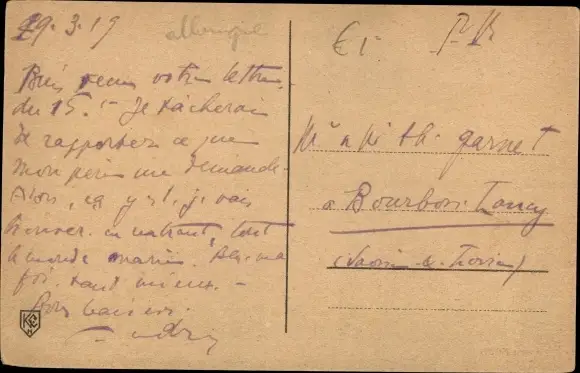 29.3.19
Bien reçu votre lettre
du 15. - Je tâcherai
de rapporter ce que
mon père me demande.
Alors, ça y est, je vais
trouver en rentrant, tout
le monde marié. Eh ma
foi tant mieux. -
Bons baisers.
allemagne
€1-
Mr & Mme Th. Garnet
à Bourbon-Lancy
(Saône & Loire)